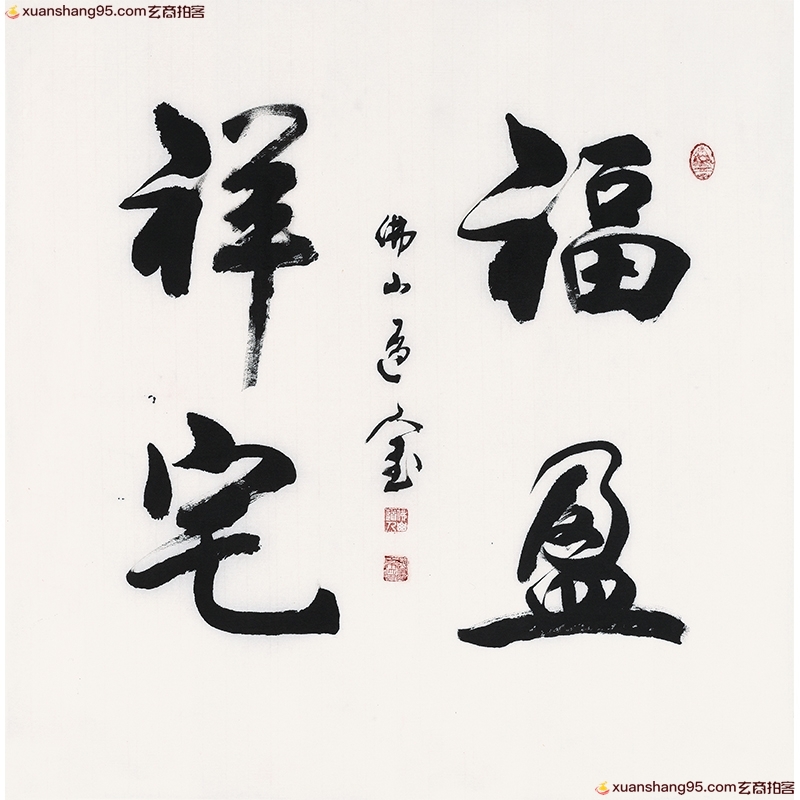 xuanshang95.com玄商拍客
福盈
佛山
祥宅
xuanshang95.com玄商拍客